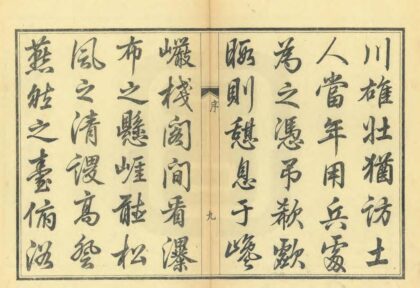 川雄壯猶訪土
人當年用兵處
為之憑弔欷歔
暇則憩息于巉
序
九
巖棧閣間看瀑
布之懸崖聽松
風之清謖高登
燕然之臺俯浴